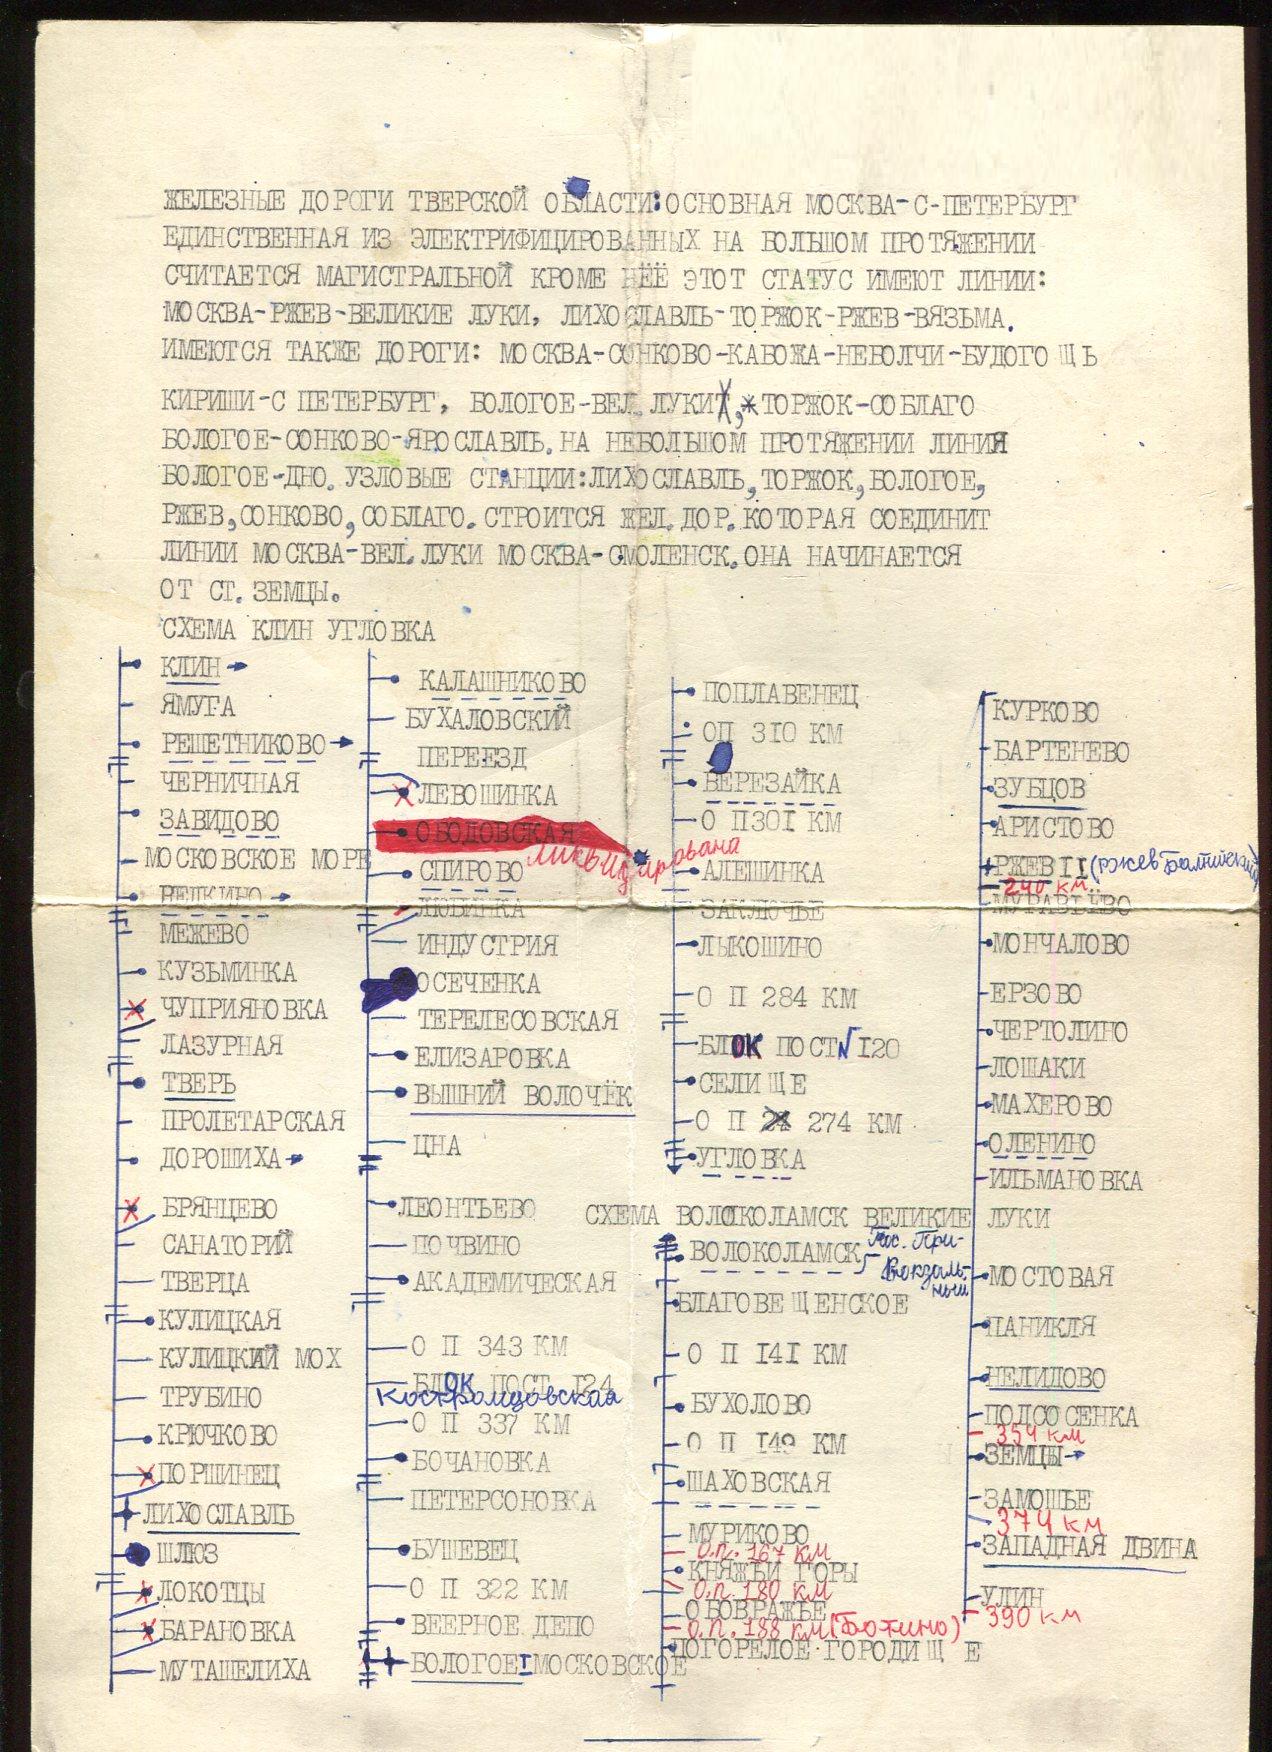 ЖЕЛЕЗНЫЕ ДОРОГИ ТВЕРСКОЙ ОБЛАСТИ: ОСНОВНАЯ МОСКВА-С-ПЕТЕРБУРГ
ЕДИНСТВЕННАЯ ИЗ ЭЛЕКТРИФИЦИРОВАННЫХ НА БОЛЬШОМ ПРОТЯЖЕНИИ
СЧИТАЕТСЯ МАГИСТРАЛЬНОЙ КРОМЕ НЕЁ ЭТОТ СТАТУС ИМЕЮТ ЛИНИИ:
МОСКВА-РЖЕВ-ВЕЛИКИЕ ЛУКИ, ЛИХОСЛАВЛЬ-ТОРЖОК-РЖЕВ-ВЯЗЬМА.
ИМЕЮТСЯ ТАКЖЕ ДОРОГИ: МОСКВА-СОНКОВО-КАБОЖА-НЕБОЛЧИ-БУДОГОЩЬ
КИРИШИ-С ПЕТЕРБУРГ, БОЛОГОЕ-ВЕЛ.ЛУКИ, ТОРЖОК-СОБЛАГО
БОЛОГОЕ-СОНКОВО-ЯРОСЛАВЛЬ. НА НЕБОЛЬШОМ ПРОТЯЖЕНИИ ЛИНИЯ
БОЛОГОЕ-ДНО. УЗЛОВЫЕ СТАНЦИИ: ЛИХОСЛАВЛЬ, ТОРЖОК, БОЛОГОЕ,
РЖЕВ, СОНКОВО, СОБЛАГО. СТРОИТСЯ ЖЕЛ.ДОР. КОТОРАЯ СОЕДИНИТ
ЛИНИИ МОСКВА-ВЕЛ.ЛУКИ МОСКВА-СМОЛЕНСК. ОНА НАЧИНАЕТСЯ
ОТ СТ. ЗЕМЦЫ.
СХЕМА КЛИН УГЛОВКА
КЛИН
ЯМУГА
РЕШЕТНИКОВО
ЧЕРНИЧНАЯ
ЗАВИДОВО
МОСКОВСКОЕ МОРЕ
РЕДКИНО
МЕЖЕВО
КУЗЬМИНКА
ЧУПРИЯНОВКА
ЛАЗУРНАЯ
ТВЕРЬ
ПРОЛЕТАРСКАЯ
ДОРОШИХА
БРЯНЦЕВО
САНАТОРИЙ
ТВЕРЦА
КУЛИЦКАЯ
КУЛИЦКИЙ МОХ
ТРУБИНО
КРЮЧКОВО
ПОРШИНЕЦ
ЛИХОСЛАВЛЬ
ШЛЮЗ
ЛОКОТЦЫ
БАРАНОВКА
МУТАШЕЛИХА
КАЛАШНИКОВО
БУХАЛОВСКИЙ
ПЕРЕЕЗД
ЛЕВОШИНКА
ОБОДОВСКАЯ ликвидирована
СПИРОВО
ЛЮБИНКА
ИНДУСТРИЯ
ОСЕЧЕНКА
ТЕРЕЛЕСОВСКАЯ
ЕЛИЗАРОВКА
ВЫШНИЙ ВОЛОЧЁК
ЦНА
ЛЕОНТЬЕВО
ПОЧВИНО
АКАДЕМИЧЕСКАЯ
О П 343 КМ
БЛОК ПОСТ 124
Костромцовская
О П 337 КМ
БОЧАНОВКА
ПЕТЕРСОНОВКА
БУШЕВЕЦ
О П 322 КМ
ВЕЕРНОЕ ДЕПО
БОЛОГОЕ I МОСКОВСКОЕ
ПОПЛАВЕНЕЦ
ОП 310 КМ
БЕРЕЗАЙКА
О П301 КМ
АЛЕШИНКА
ЗАКЛЮЧЬЕ
ЛЫКОШИНО
О П 284 КМ
БЛОК ПОСТ N 120
СЕЛИЩЕ
О П 274 КМ
УГЛОВКА
СХЕМА ВОЛОКОЛАМСК ВЕЛИКИЕ ЛУКИ
ВОЛОКОЛАМСК Пос. При-
вокзаль-
ный
БЛАГОВЕЩЕНСКОЕ
О П 141 КМ
БУХОЛОВО
О П 149 КМ
ШАХОВСКАЯ
МУРИКОВО
о.п. 167 км
КНЯЖЬИ ГОРЫ
о.п. 180 км
ОБОВРАЖЬЕ
о.п. 188 км (Ботино)
ПОГОРЕЛОЕ ГОРОДИЩЕ
КУРКОВО
БАРТЕНЕВО
ЗУБЦОВ
АРИСТОВО
РЖЕВ II (Ржев Балтийский)
240 км
МУРАВЬЁВО
МОНЧАЛОВО
ЕРЗОВО
ЧЕРТОЛИНО
ЛОШАКИ
МАХЕРОВО
ОЛЕНИНО
ИЛЬМАНОВКА
МОСТОВАЯ
ПАНИКЛЯ
НЕЛИДОВО
ПОДСОСЕНКА
354 км
ЗЕМЦЫ
ЗАМОШЬЕ
374 км
ЗАПАДНАЯ ДВИНА
УЛИН
390 км